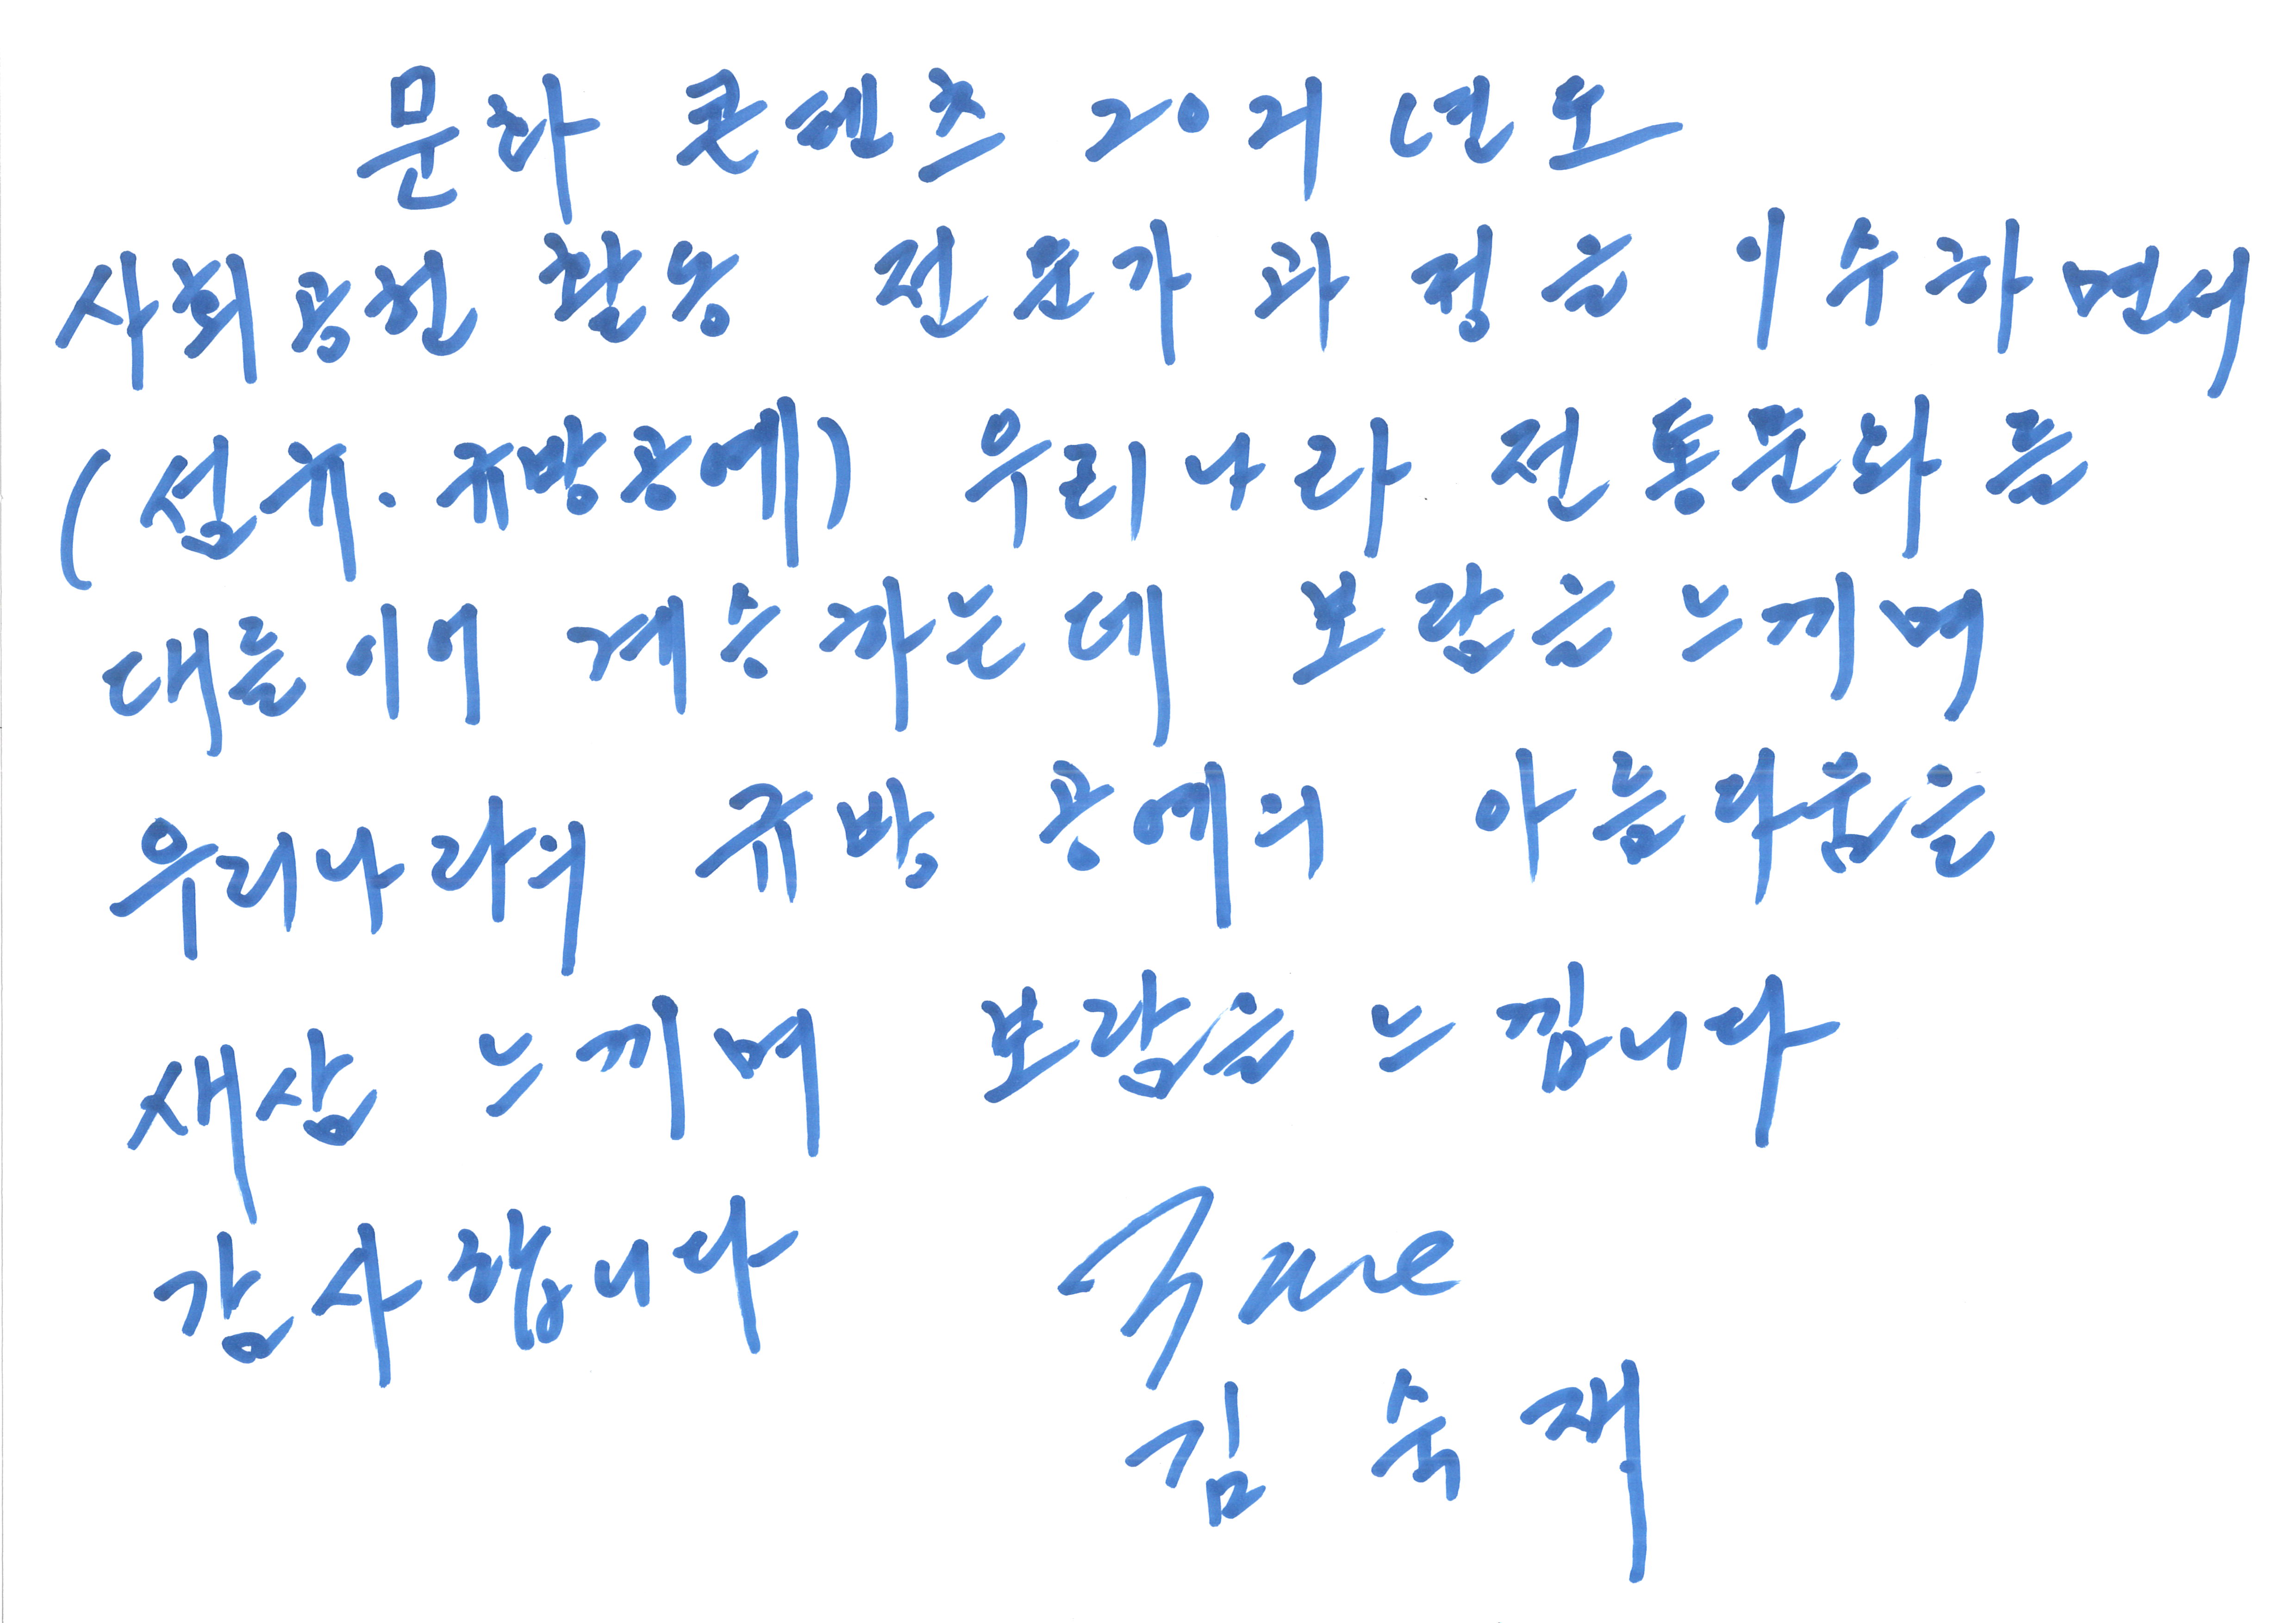 문화 콘텐츠 2021 년도
사회공헌 활동 전문가 과정을 이수하면서
(섬유. 규방공예) 우리나라 전통문화를
대를이어 계승하는데 보람을 느끼며
우리나라의 규방 공예의 아름다움을
새삼 느끼며 보람을 느낍니다
감사합니다
김 숙 재